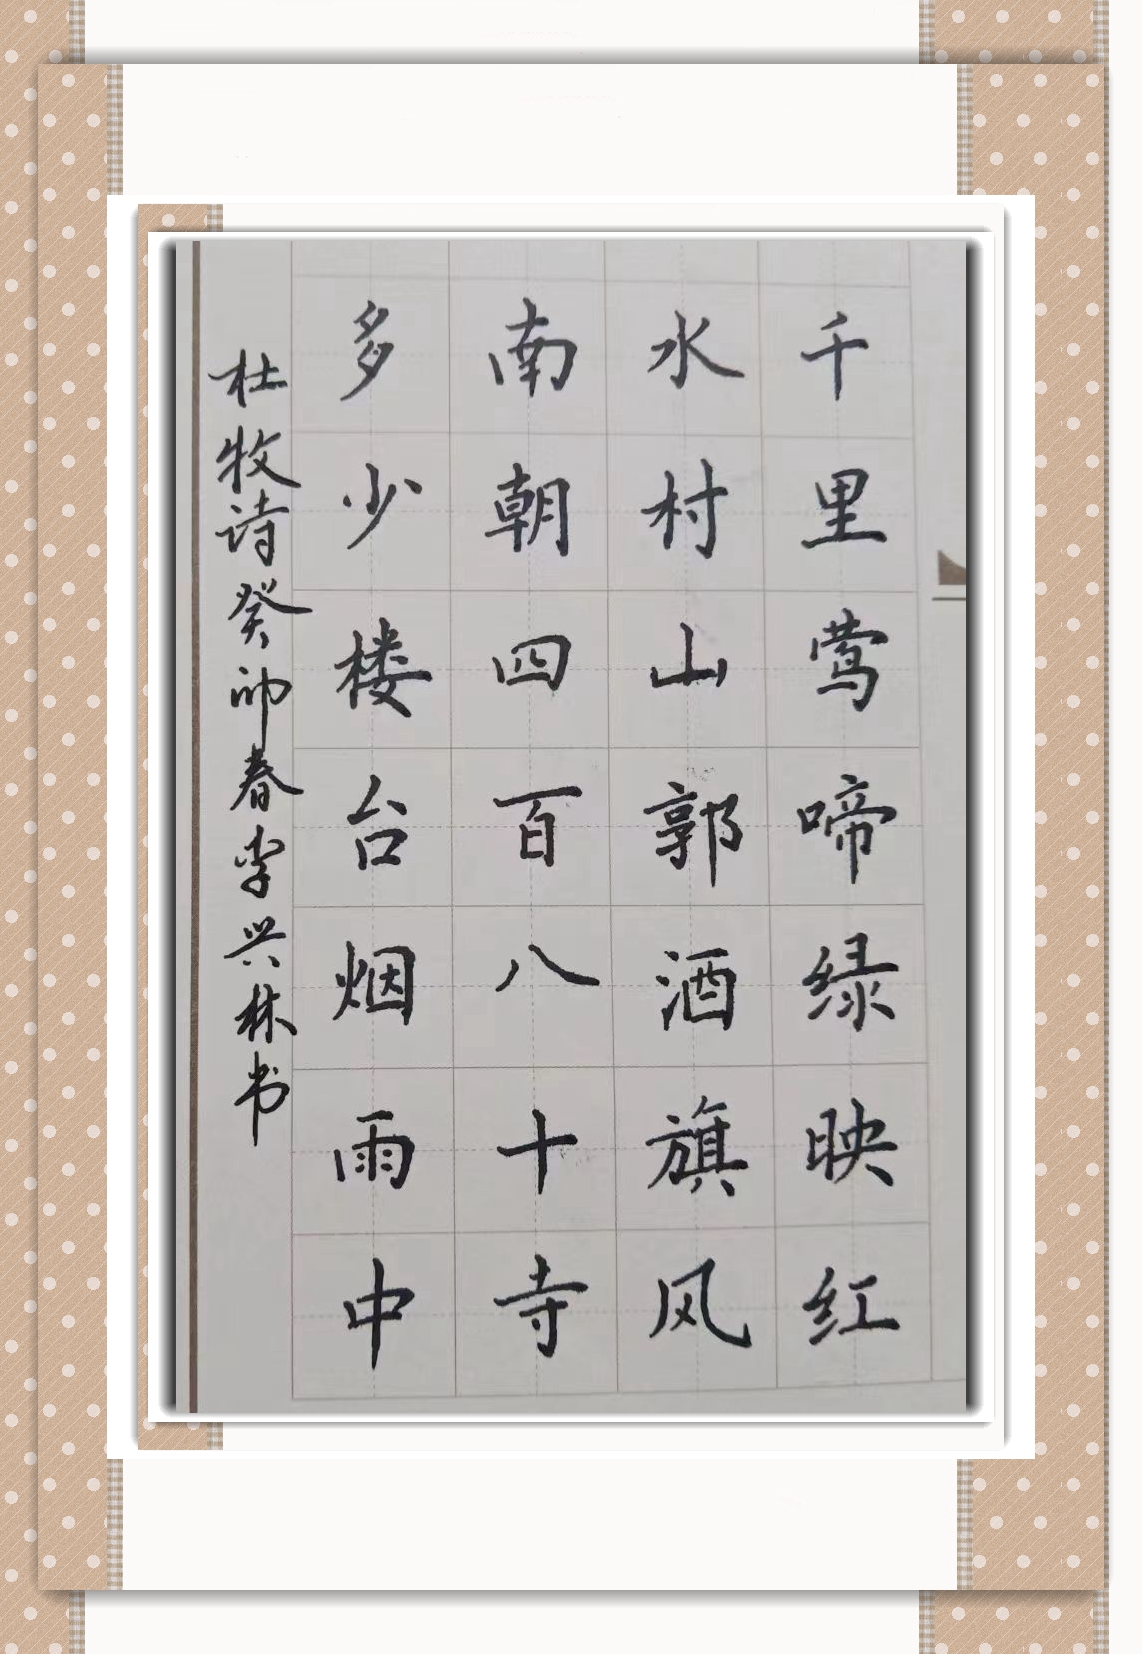 千里莺啼绿映红
水村山郭酒旗风
南朝四百八十寺
多少楼台烟雨中
杜牧诗癸卯春李兴林书